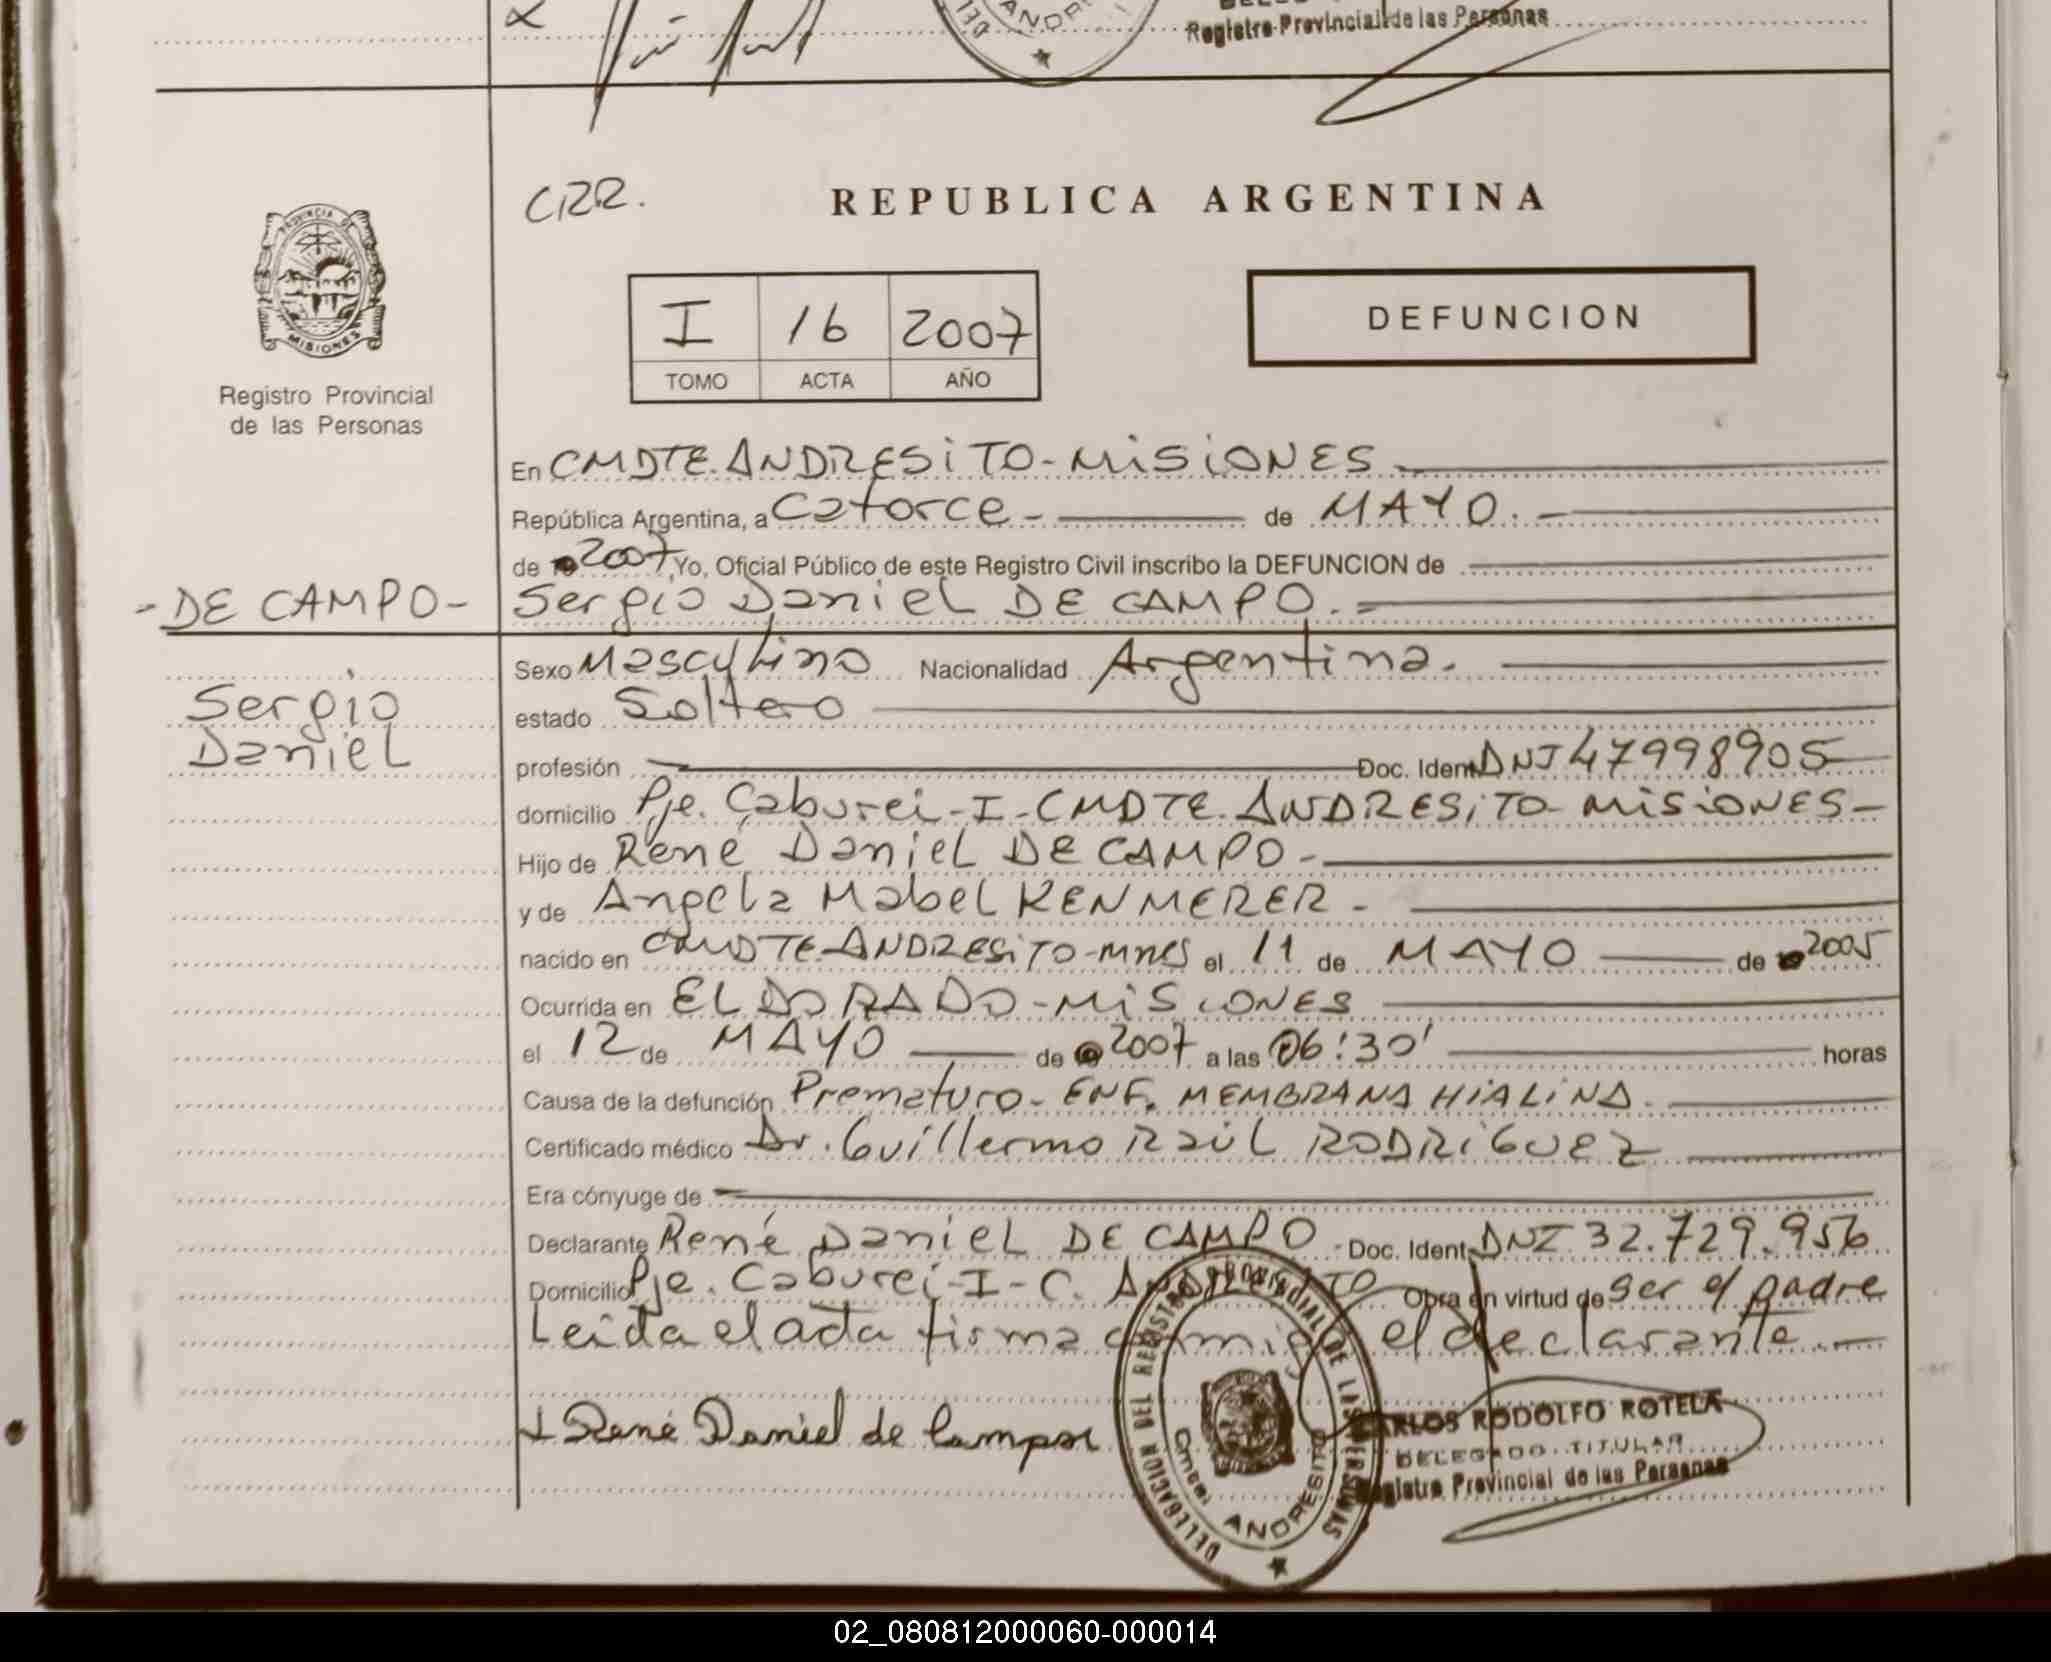 Registro Provincial de las Personas
CRR.
REPUBLICA ARGENTINA
PROVINCIA DE
MISIONES
I 16 2007
TOMO ACTA AÑO
DEFUNCION
Registro Provincial
de las Personas
En CMDTE. ANDRESiTO - MiSiONES
República Argentina, a Catorce - de MAYO. -
de 2007 Yo, Oficial Público de este Registro Civil inscribo la DEFUNCION de
- DE CAMPO -
Sergio Daniel DE CAMPO. =
Sexo Masculino Nacionalidad Argentina.
Sergio
Daniel
estado Soltero
profesión Doc. Ident. DNI 47998905
domicilio Pje. Caburei - I - CMDTE. ANDRESiTO - MiSiONES -
Hijo de René Daniel DE CAMPO -
y de Angela Mabel KENMERER -
nacido en CMDTE. ANDRESiTO - MNES el 11 de MAYO de 2005
Ocurrida en ELDORADO - MiSiONES
el 12 de MAYO de 2007 a las 06:30' horas
Causa de la defunción Prematuro - ENF. MEMBRANA HiALiNA.
Certificado médico Dr. Guillermo Raúl RODRiGUEZ
Era cónyuge de
Declarante René Daniel DE CAMPO - Doc. Ident. DNI 32.729.956
Domicilio Pje. Caburei - I - C. ANDRESiTO Obra en virtud de ser el padre
Leida el acta firma conmigo el declarante. -
René Daniel de Campos
DELEGACION DEL REGISTRO PROVINCIAL DE LAS PERSONAS
ANDRESITO
CARLOS RODOLFO ROTELA
DELEGADO TITULAR
Registro Provincial de las Personas
02_080812000060-000014